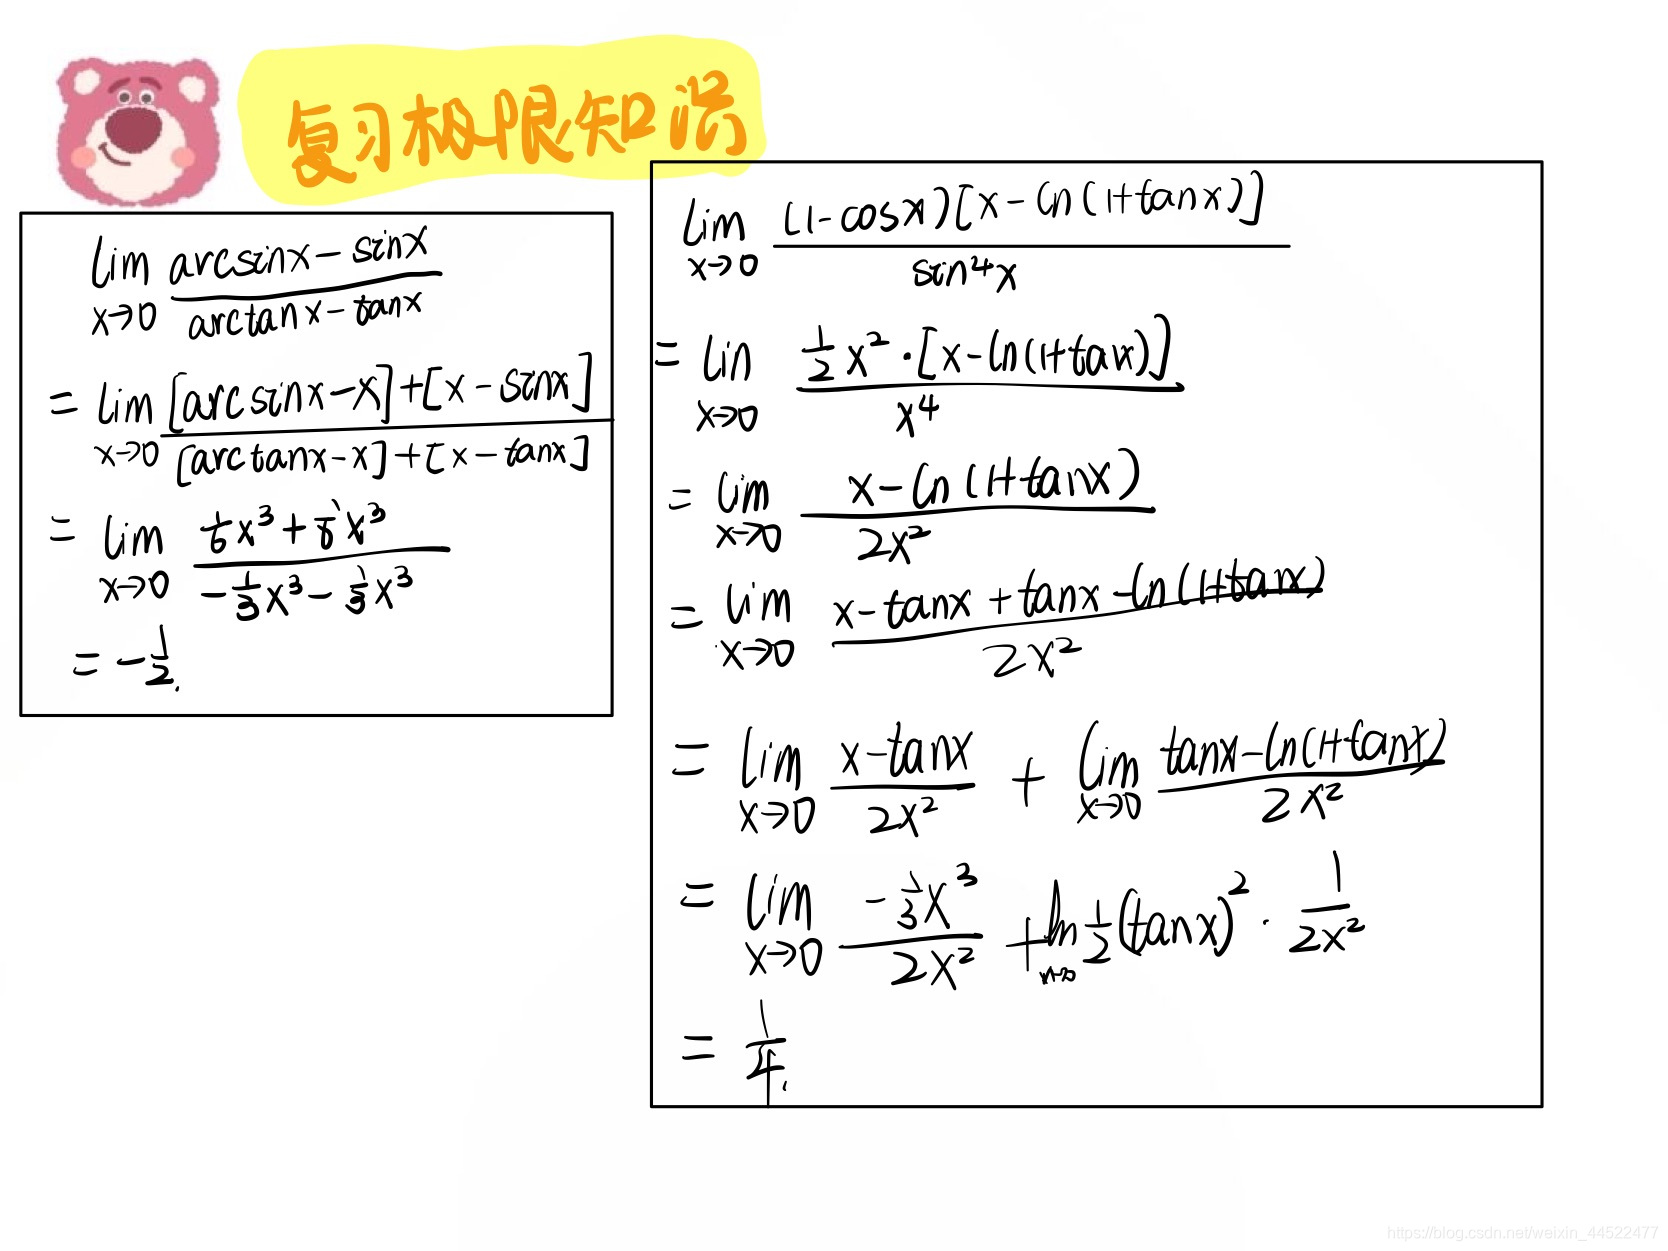 复习极限知识
lim x→0 (arcsinx − sinx)/(arctanx − tanx)
= lim x→0 ([arcsinx−x]+[x−sinx])/([arctanx−x]+[x−tanx])
= lim x→0 (1/6 x³ + 1/6 x³)/(−1/3 x³ − 1/3 x³)
= −1/2.
lim x→0 ((1−cosx)[x−ln(1+tanx)])/(sin⁴x)
= lim x→0 (1/2 x²·[x−ln(1+tanx)])/(x⁴)
= lim x→0 (x−ln(1+tanx))/(2x²)
= lim x→0 (x−tanx+tanx−ln(1+tanx))/(2x²)
= lim x→0 (x−tanx)/(2x²) + lim x→0 (tanx−ln(1+tanx))/(2x²)
= lim x→0 (−1/3 x³)/(2x²) + 1/2 (tanx)² · 1/(2x²)
= 1/4.
https://blog.csdn.net/weixin_44522477